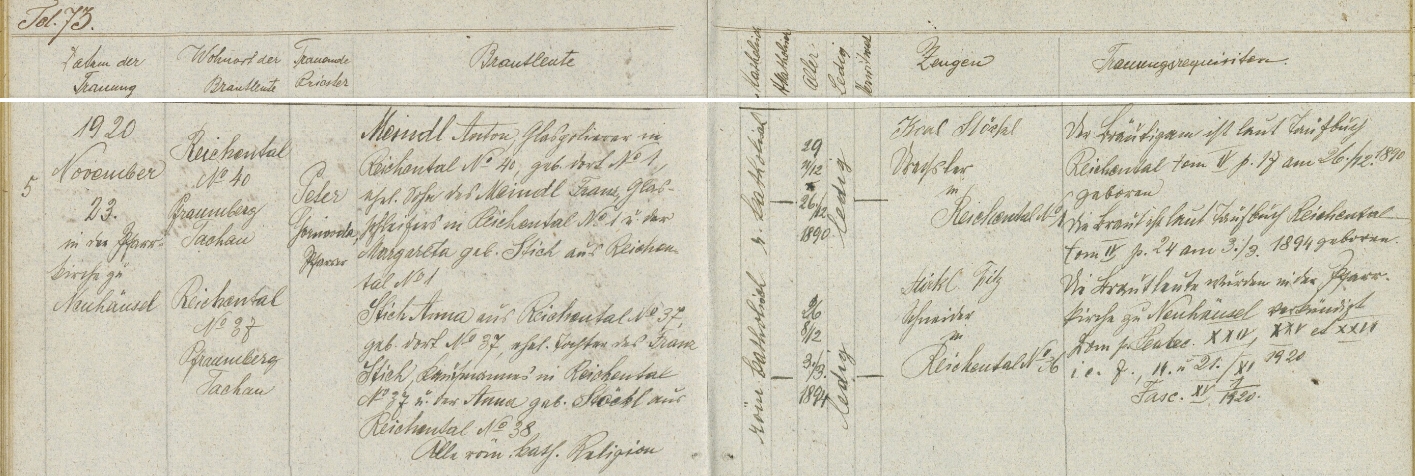 Fol. 73.
Datum der
Trauung
Wohnort der
Brautleute
Trauende
Priester
Brautleute
Katholisch
Alter
Ledig
Verwitwet
Zeugen
Trauungsrequisiten.
5
1920
November
23.
in der Pfarr-
kirche zu
Neuhäusel
Reichental
No 40
Pfraumberg
Tachau
Reichental
No 37
Pfraumberg
Tachau
Peter
Pfarrer
Meindl Anton, Glaspolierer in
Reichental No 40, geb. dort No 1,
ehel. Sohn des Meindl Franz, Glas-
schleifers in Reichental No 1 u. der
Margareta geb. Stich aus Reichen-
tal No 1
Stich Anna aus Reichental No 37,
geb. dort No 37, ehel. Tochter des Franz
Stich, Kaufmannes in Reichental
No 37 u. der Anna geb. Stöckl aus
Reichental No 38
Alle röm. kath. Religion
röm. katholisch r. katholisch
29
11/12
26/12.
1890
ledig
26
8/12
3./3.
1894
ledig
in
Reichental No
Schneider
in
Reichental No 26
Der Bräutigam ist laut Taufbuch
Reichental tom IV p. 17 am 26./12. 1890
geboren
Die Braut ist laut Taufbuch Reichental
tom IV p. 24 am 3./3. 1894 geboren.
Die Brautleute wurden in der Pfarr-
kirche zu Neuhäusel verkündigt
Dom p. Pentec. XXIV, XXV et XXVI
i. e. 7., 14. u. 21./XI 1920
Fasc. XV 1920.